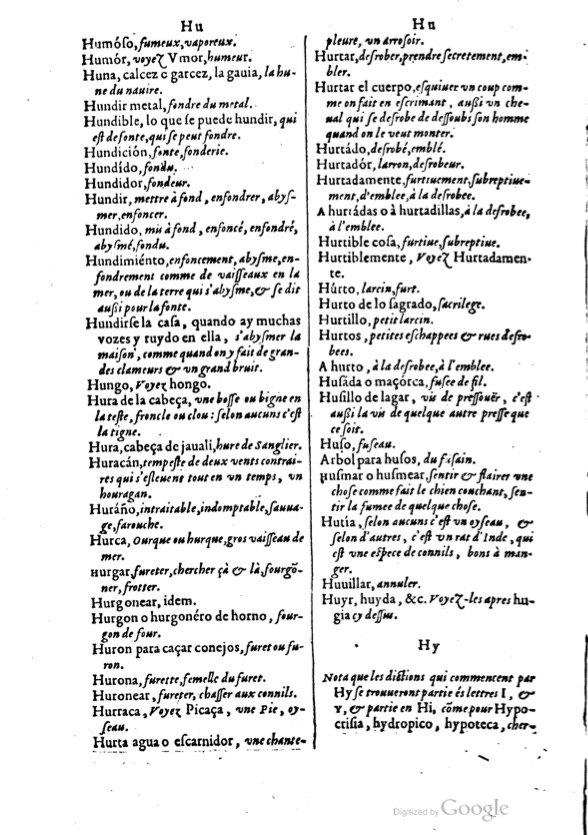 Hu
Humóſo, fumeux, vaporeux.
Humór, voyez Vmor, humeur.
Huna, calcez o garcez, la gauia, la hu-
ne du nauire.
Hundir metal, fondre du metal.
Hundible, lo que ſe puede hundir, qui
eſt de fonte, qui ſe peut fondre.
Hundición, fonte, fonderie.
Hundído, fondu.
Hundidor, fondeur.
Hundir, mettre à fond, enfondrer, abyſ-
mer, enfoncer.
Hundido, mis à fond, enfoncé, enfondré,
abyſmé, fondu.
Hundimiénto, enfoncement, abyſme, en-
fondrement comme de vaiſſeaux en la
mer, ou de la terre qui s'abyſme, & ſe dit
auſſi pour la fonte.
Hundirſe la caſa, quando ay muchas
vozes y ruydo en ella, s'abyſmer la
maiſon, comme quand on y fait de gran-
des clameurs & vn grand bruit.
Hungo, Voyez hongo.
Hura de la cabeça, vne boſſe ou bigne en
la teſte, froncle ou clou: ſelon aucuns c'eſt
la tigne.
Hura, cabeça de jauali, hure de Sanglier.
Huracán, tempeſte de deux vents contrai-
res qui s'eſleuent tout en un temps, vn
houragan.
Huráño, intraitable, indomptable, ſauua-
ge, farouche.
Hurca, Ourque ou hurque, gros vaiſſeau de
mer.
Hurgar, fureter, chercher çà & là, fourgō-
ner, frotter.
Hurgonear, idem.
Hurgon o hurgonéro de horno, four-
gon de four.
Huron para caçar conejos, furet ou fu-
ron.
Hurona, furette, femelle du furet.
Huronear, fureter, chaſſer aux connils.
Hurraca, Voyez Picaça, vne Pie, oy-
ſeau.
Hurta agua o eſcarnidor, vne chante-
Hu
pleure, vn arroſoir.
Hurtar, deſrober, prendre ſecretement, em-
bler.
Hurtar el cuerpo, eſquiuer vn coup com-
me on fait en eſcrimant, auſſi vn che-
ual qui ſe deſrobe de deſſoubs ſon homme
quand on le veut monter.
Hurtádo, deſrobé, emblé.
Hurtadór, larron, deſrobeur.
Hurtadamente, furtiuement, ſubreptiue-
ment, d'emblee, à la deſrobee.
A hurtádas o à hurtadillas, à la deſrobee,
à l'emblee.
Hurtible coſa, furtiue, ſubreptiue.
Hurtiblemente, Voyez Hurtadamen-
te.
Húrto, larcin, furt.
Hurto de lo ſagrado, ſacrilege.
Hurtillo, petit larcin.
Hurtos, petites eſchappees & rues deſro-
bees.
A hurto, à la deſrobee, à l'emblee.
Huſáda o maçorca, fuſee de fil.
Huſillo de lagar, vis de preſſouër, c'eſt
auſſi la vis de quelque autre preſſe que
ce ſoit.
Huſo, fuſeau.
Arbol para huſos, du fuſain.
Huſmar o huſmear, ſentir & flairer vne
choſe comme fait le chien couchant, ſen-
tir la fumee de quelque choſe.
Hutía, ſelon aucuns c'eſt vn oyſeau, &
ſelon d'autres, c'eſt vn rat d'Inde, qui
eſt vne eſpece de connils, bons à man-
ger.
Huuillar, annuler.
Huyr, huyda, &c. Voyez-les apres hu-
gia cy deſſus.
Hy
Nota que les dictions qui commencent par
Hy ſe trouueront partie és lettres I, &
Y, & partie en Hi, cōme pour Hypo-
criſia, hydropico, hypoteca, cher-
Digitized by Google